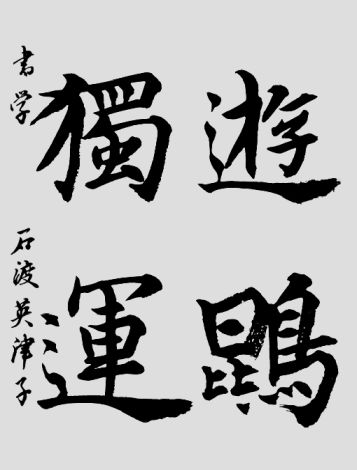 遊鵾
獨運
書学 石渡英津子